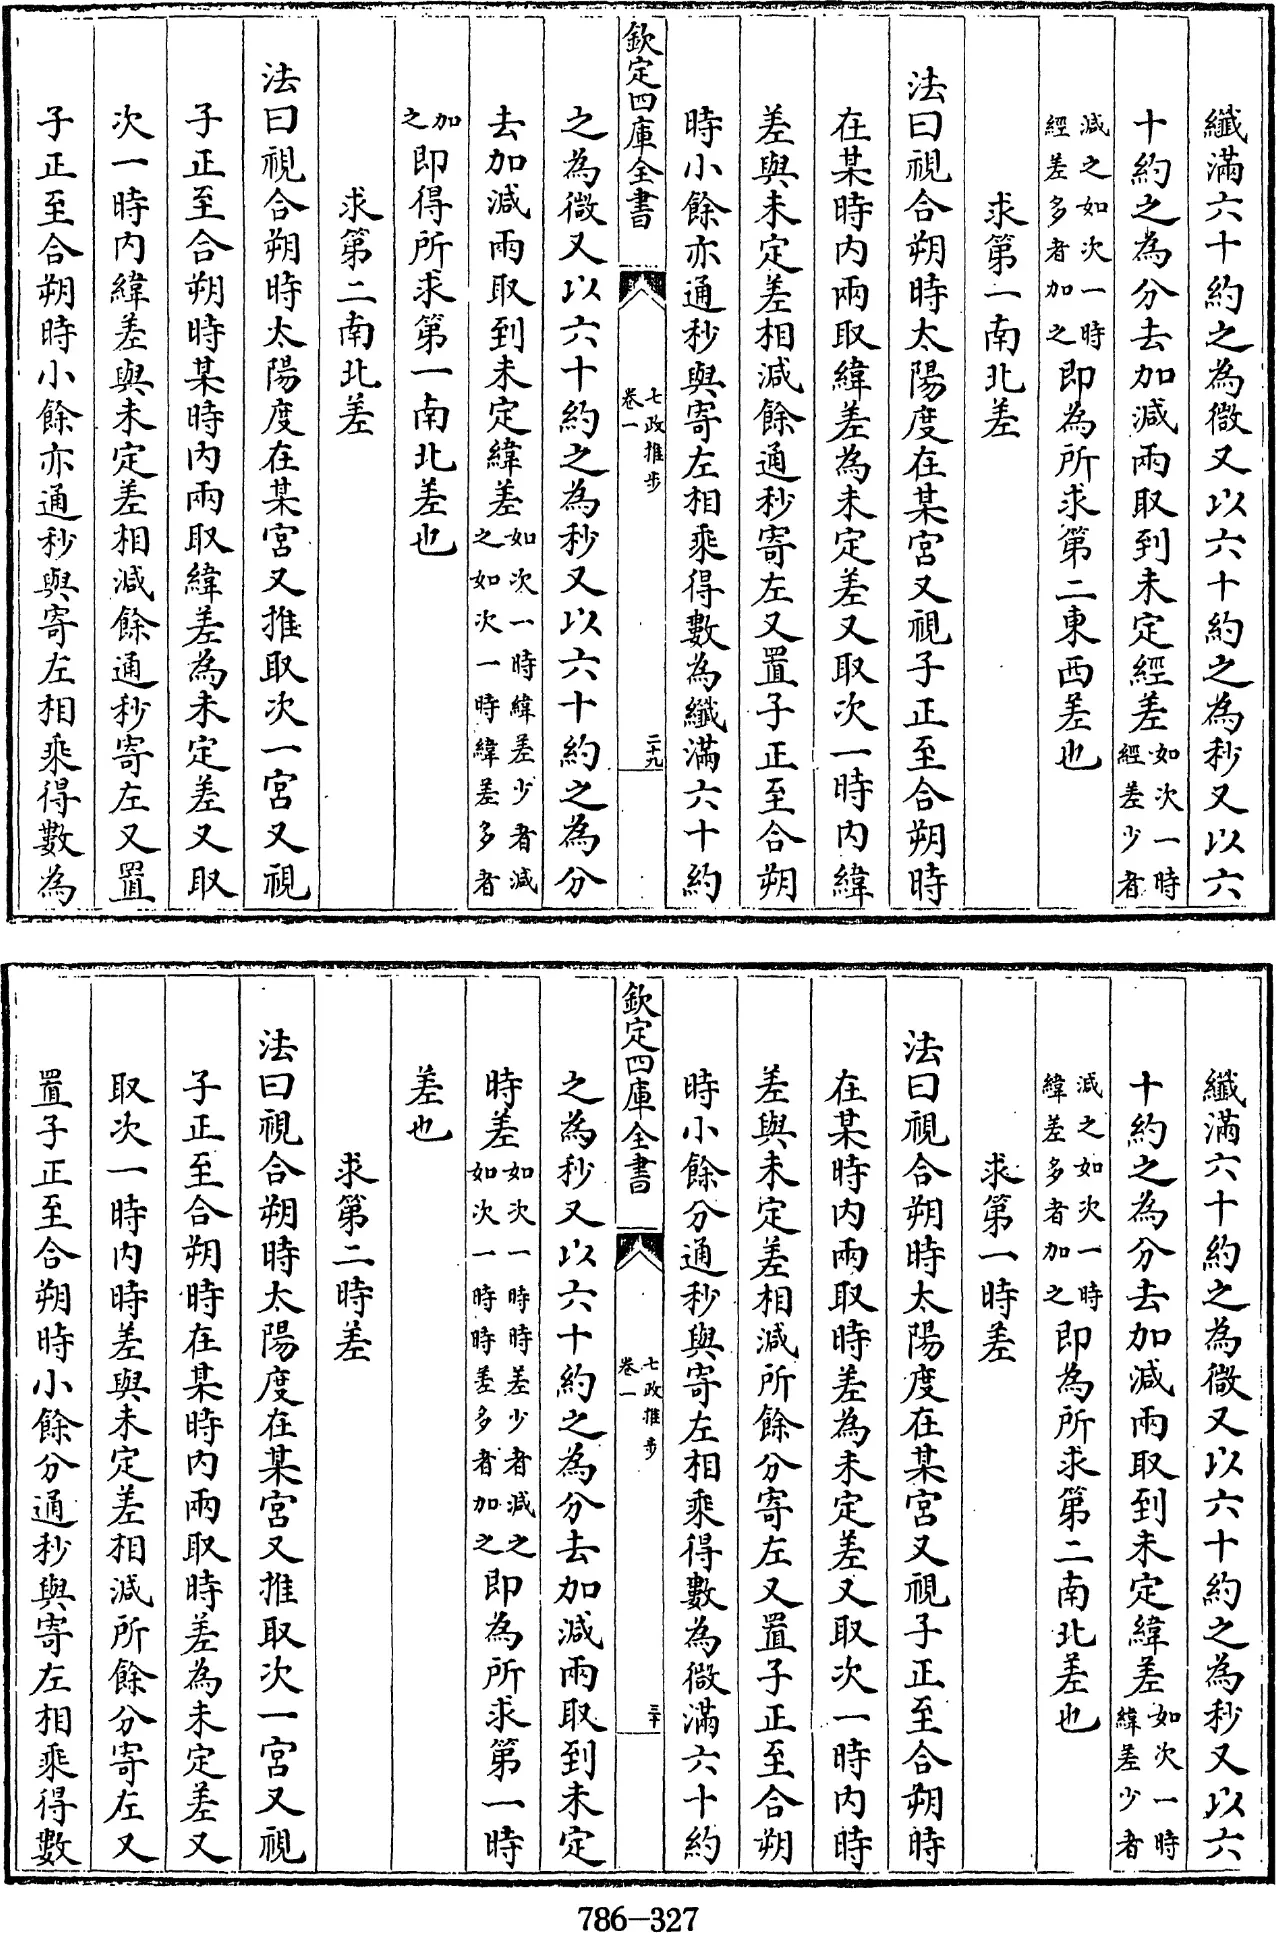 纎滿六十約之為微又以六十約之為秒又以六
十約之為分去加減兩取到未定經差如次一時經差少者
減之如次一時經差多者加之即為所求第二東西差也
求第一南北差
法曰視合朔時太陽度在某宮又視子正至合朔時
在某時内兩取緯差為未定差又取次一時内緯
差與未定差相減餘通秒寄左又置子正至合朔
時小餘亦通秒與寄左相乘得數為纎滿六十約
欽定四庫全書
七政推步
卷一
二十九
之為微又以六十約之為秒又以六十約之為分
去加減兩取到未定緯差如次一時緯差少者減之如次一時緯差多者
加之即得所求第一南北差也
求第二南北差
法曰視合朔時太陽度在某宮又推取次一宮又視
子正至合朔時某時内兩取緯差為未定差又取
次一時内緯差與未定差相減餘通秒寄左又置
子正至合朔時小餘亦通秒與寄左相乘得數為
纎滿六十約之為微又以六十約之為秒又以六
十約之為分去加減兩取到未定緯差如次一時緯差少者
減之如次一時緯差多者加之即為所求第二南北差也
求第一時差
法曰視合朔時太陽度在某宮又視子正至合朔時
在某時内兩取時差為未定差又取次一時内時
差與未定差相減所餘分寄左又置子正至合朔
時小餘分通秒與寄左相乘得數為微滿六十約
欽定四庫全書
七政推步
卷一
三十
之為秒又以六十約之為分去加減兩取到未定
時差如次一時時差少者減之如次一時時差多者加之即為所求第一時
差也
求第二時差
法曰視合朔時太陽度在某宮又推取次一宮又視
子正至合朔時在某時内兩取時差為未定差又
取次一時内時差與未定差相減所餘分寄左又
置子正至合朔時小餘分通秒與寄左相乘得數
786-327